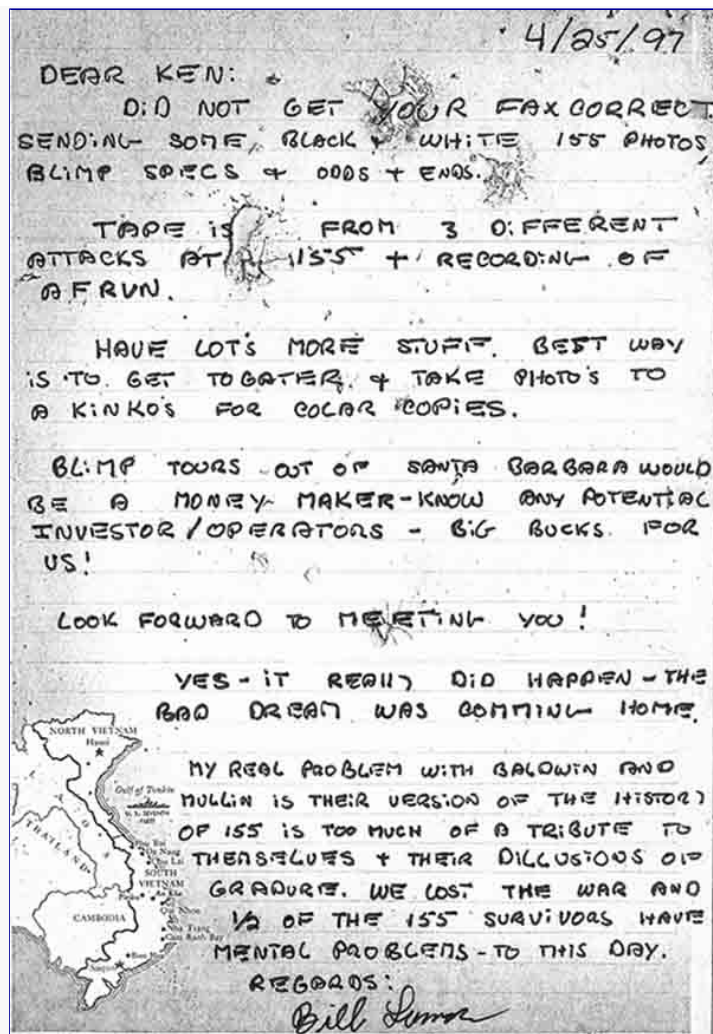 4/25/97
DEAR KEN:
DID NOT GET YOUR FAX CORRECT.
SENDING SOME BLACK & WHITE 155 PHOTOS,
BLIMP SPECS + ODDS + ENDS.
TAPE IS FROM 3 DIFFERENT
ATTACKS AT 155 + RECORDING OF
A F RUN.
HAVE LOT'S MORE STUFF. BEST WAY
IS TO GET TOGATER & TAKE PHOTO'S TO
A KINKO'S FOR COLAR COPIES.
BLIMP TOURS OUT OF SANTA BARBARA WOULD
BE A MONEY MAKER-KNOW ANY POTENTIAL
INVESTOR/OPERATORS - BIG BUCKS FOR
US!
LOOK FORWARD TO MEETING YOU!
YES - IT REALLY DID HAPPEN - THE
BAD DREAM WAS COMMING HOME.
MY REAL PROBLEM WITH BALDWIN AND
MULLIN IS THEIR VERSION OF THE HISTORY
OF 155 IS TOO MUCH OF A TRIBUTE TO
THEMSELVES + THEIR DILLUSIONS OF
GRADURE. WE LOST THE WAR AND
1/2 OF THE 155 SURVIVORS HAVE
MENTAL PROBLEMS - TO THIS DAY.
REGARDS:
Bill
NORTH VIETNAM
Hanoi
Gulf of Tonkin
LAOS
THAILAND
Phu Bai
Da Nang
Chu Lai
SOUTH
VIETNAM
An Khe
Pleiku
Qui Nhon
CAMBODIA
Nha Trang
Cam Ranh Bay
Saigon